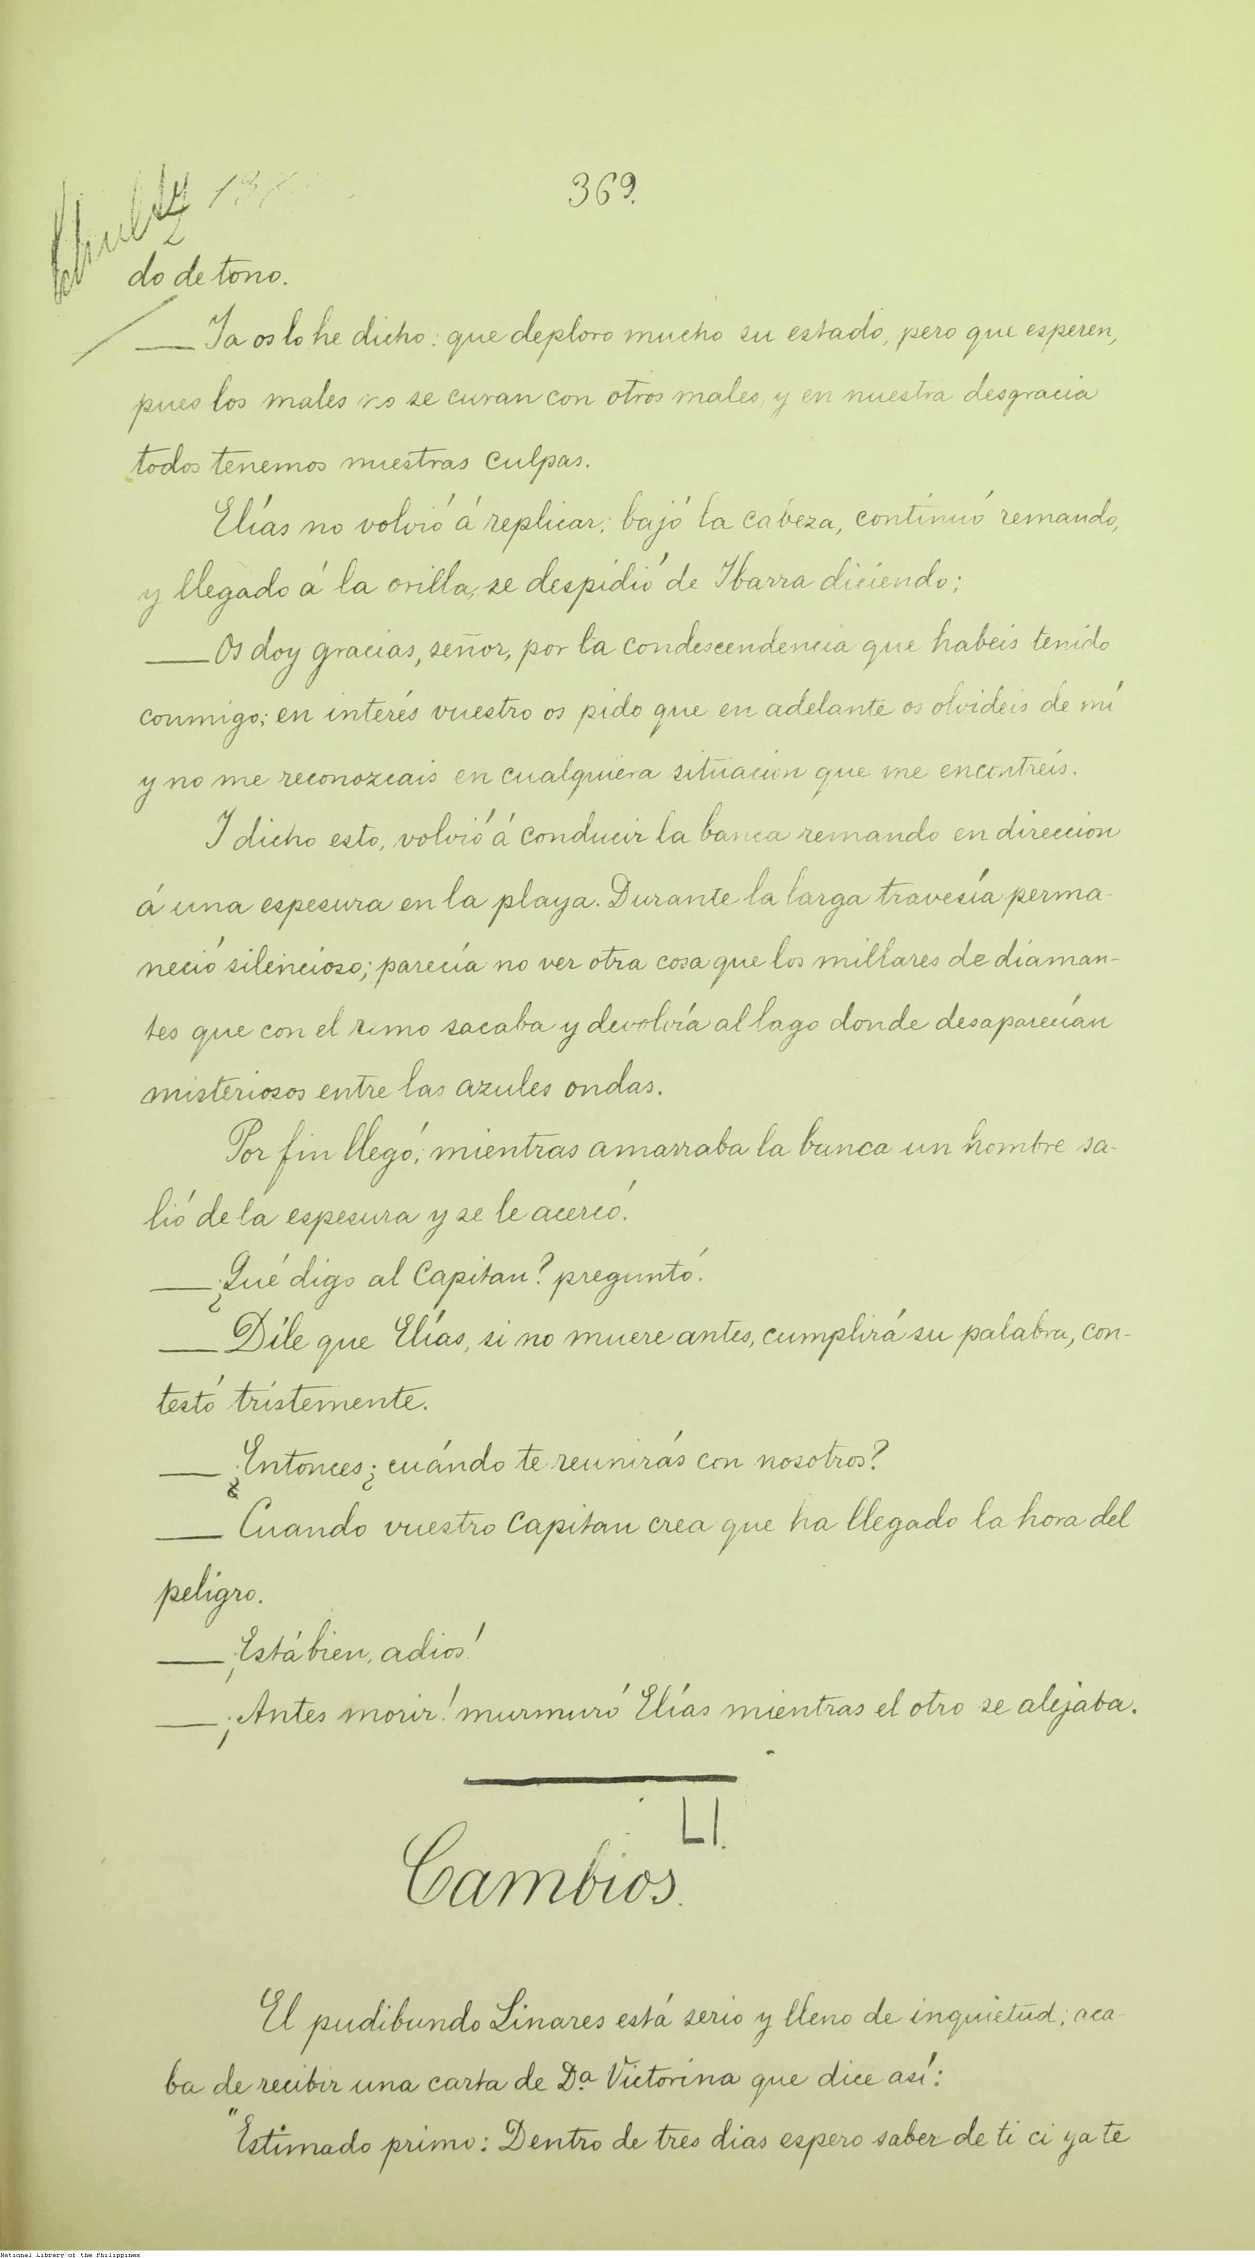 369.
Schultz
do de tono.
— Ya os lo he dicho: que deploro mucho su estado, pero que esperen,
pues los males no se curan con otros males, y en nuestra desgracia
todos tenemos nuestras culpas.
Elías no volvió á replicar; bajó la cabeza, continuó remando,
y llegado á la orilla, se despidió de Ibarra diciendo;
— Os doy gracias, señor, por la condescendencia que habeis tenido
conmigo; en interés vuestro os pido que en adelante os olvideis de mí
y no me reconozcais en cualquiera situacion que me encontreis.
Y dicho esto, volvió á conducir la banca remando en direccion
á una espesura en la playa. Durante la larga travesía perma-
neció silencioso; parecía no ver otra cosa que los millares de diaman-
tes que con el remo sacaba y devolvía al lago donde desaparecían
misteriosos entre las azules ondas.
Por fin llegó; mientras amarraba la banca un hombre sa-
lió de la espesura y se le acercó.
— ¿Qué digo al Capitan? preguntó.
— Díle que Elías, si no muere antes, cumplirá su palabra, con-
testó tristemente.
— Entonces ¿cuándo te reunirás con nosotros?
— Cuando vuestro Capitan crea que ha llegado la hora del
peligro.
— ¡Está bien, adios!
— ¡Antes morir! murmuró Elías mientras el otro se alejaba.
LI.
Cambios.
El pudibundo Linares está serio y lleno de inquietud; aca-
ba de recibir una carta de Dª Victorina que dice así:
"Estimado primo: Dentro de tres dias espero saber de ti ci ya te
National Library of the Philippines